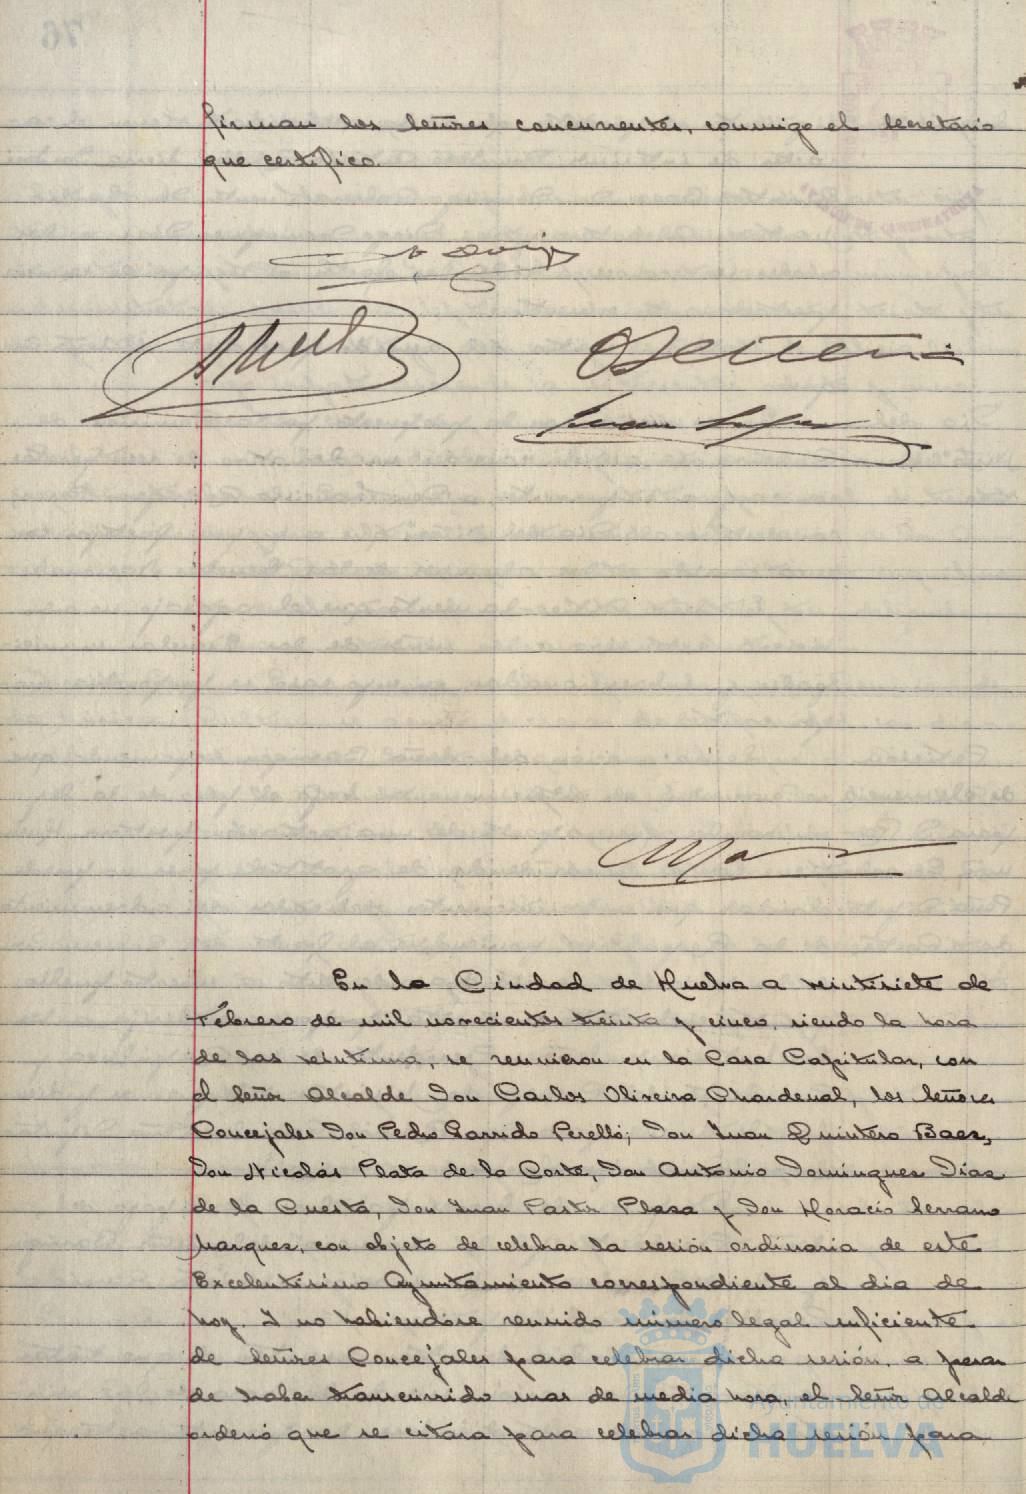 firman los señores concurrentes, conmigo el secretario
que certifico.
En la Ciudad de Huelva a veintisiete de
Febrero de mil novecientos treinta y cinco, siendo la hora
de las veintiuna, se reunieron en la Casa Capitular, con
el Señor Alcalde Don Carlos Oliveira Chardenal, los Señores
Concejales Don Pedro Garrido Perelló; Don Juan Quintero Baez,
Don Nicolás Plata de la Corte, Don Antonio Dominguez Diaz
de la Cuesta, Don Juan Pastor Plaza y Don Horacio Serrano
Marquez, con objeto de celebrar la sesión ordinaria de este
Excelentisimo Ayuntamiento correspondiente al dia de
hoy. Y no habiendose reunido número legal suficiente
de Señores Concejales para celebrar dicha sesión, a pesar
de haber transcurrido mas de media hora, el Señor Alcalde
ordenó que se citara para celebrar dicha sesión para
Ayuntamiento de
HUELVA